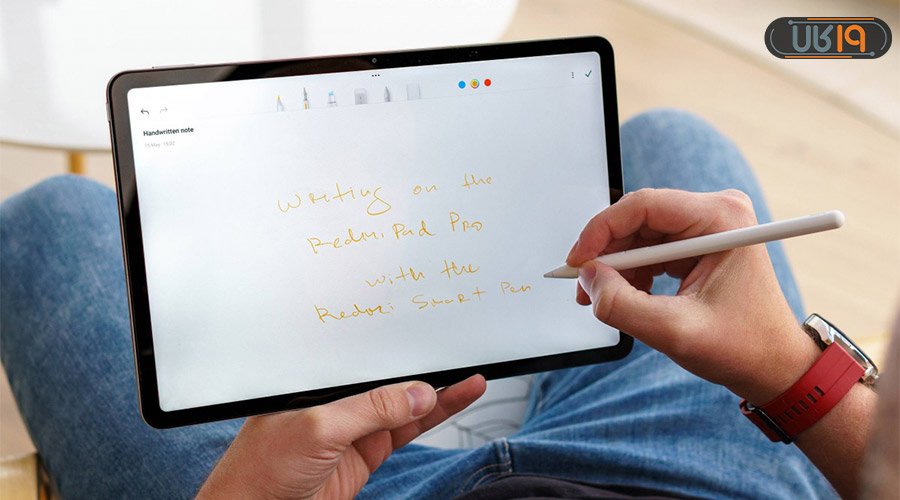 Handwritten note
15 May 16:02
Writing on the
Redmi Pad Pro
with the
Redmi Smart Pen
۱۹کالا